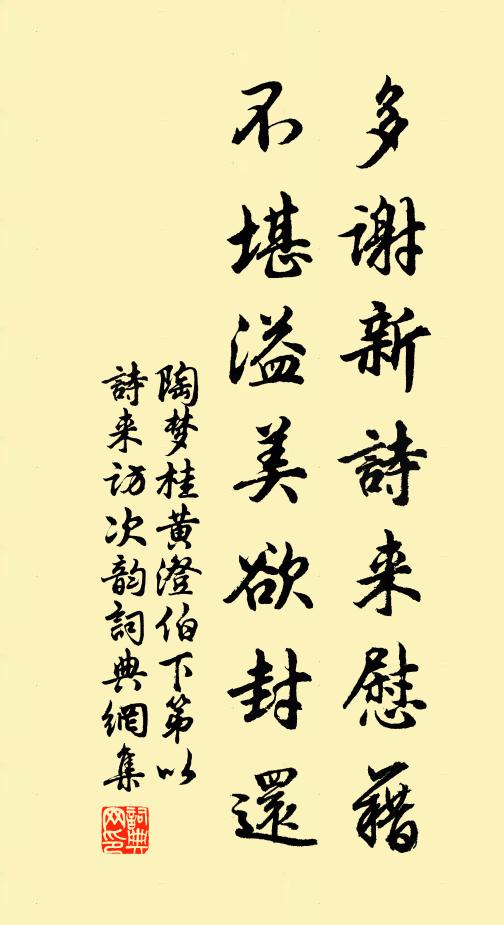 多谢新詩来慰藉
不堪溢美欲封還
陶梦桂黄澄伯下第以
詩来访次韵詞典網集
詞典网印